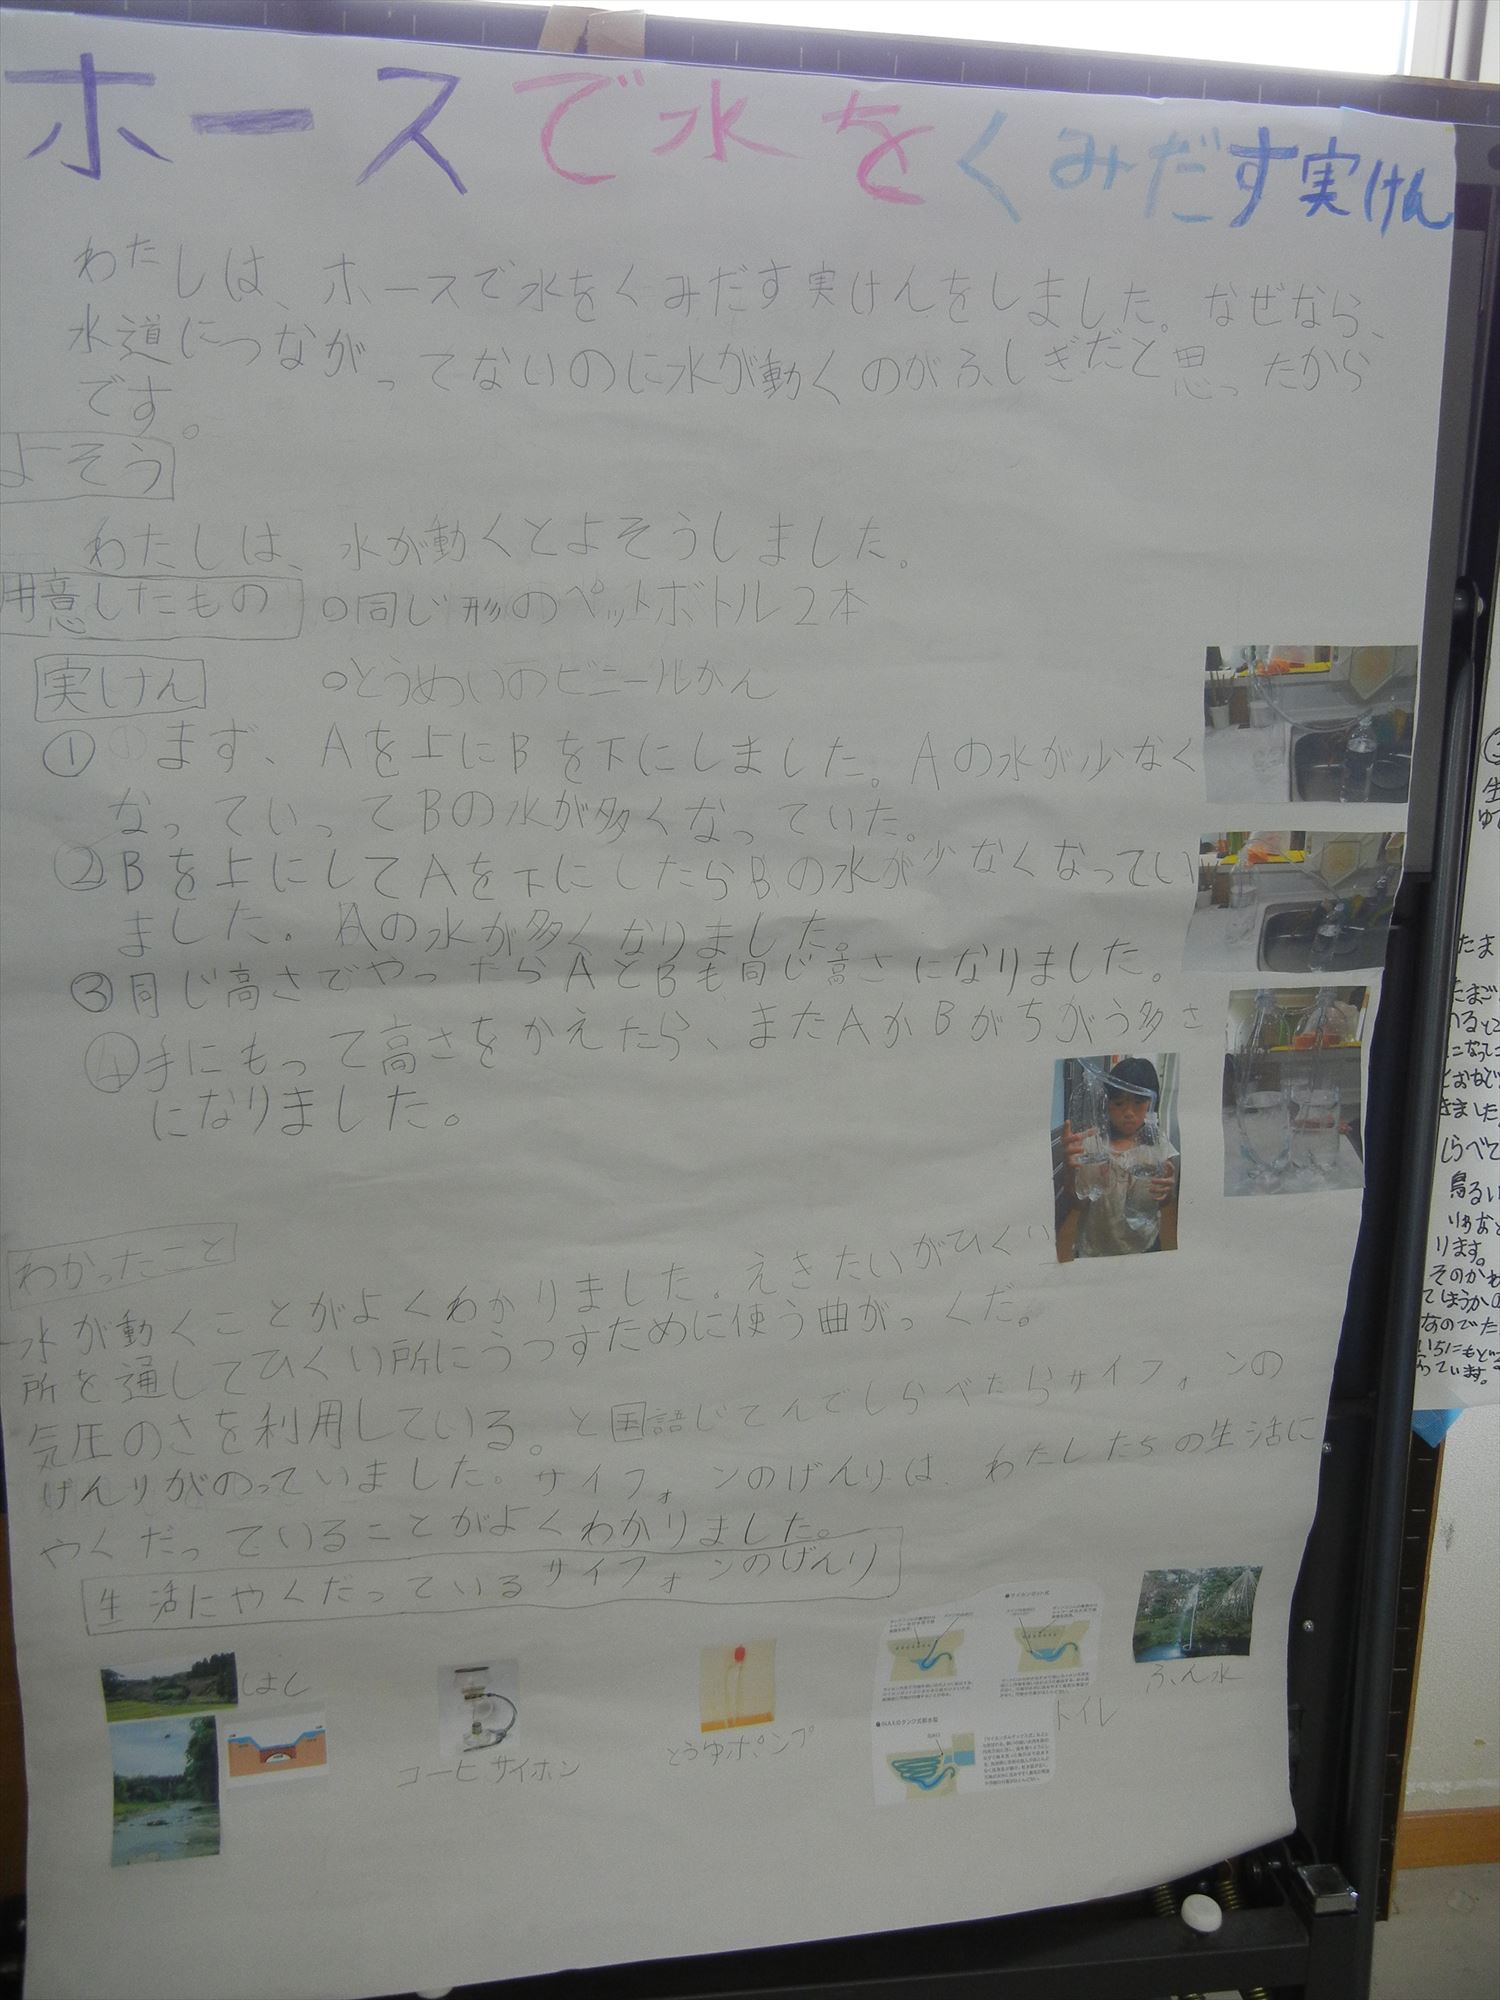 ホースで水をくみだす実けん
わたしは、ホースで水をくみだす実けんをしました。なぜなら、
水道につながってないのに水が動くのがふしぎだと思ったから
です。
よそう
わたしは、水が動くとよそうしました。
用意したもの ○同じ形のペットボトル2本
実けん ○とうめいのビニールかん
① まず、Aを上にBを下にしました。Aの水が少なく
なっていってBの水が多くなっていた。
②Bを上にしてAを下にしたらBの水が少なくなってい
ました。Aの水が多くなりました。
③同じ高さでやったらAとBも同じ高さになりました。
④手にもって高さをかえたら、またAかBがちがう多さ
になりました。
わかったこと
水が動くことがよくわかりました。えきたいがひくい
所を通してひくい所にうつすために使う曲がっくだ。
気圧のさを利用している。と国語じてんでしらべたらサイフォンの
げんりがのっていました。サイフォンのげんりは、わたしたちの生活に
やくだっていることがよくわかりました。
生活にやくだっているサイフォンのげんり
はし
コーヒサイホン
とうゆポンプ
トイレ
ふん水